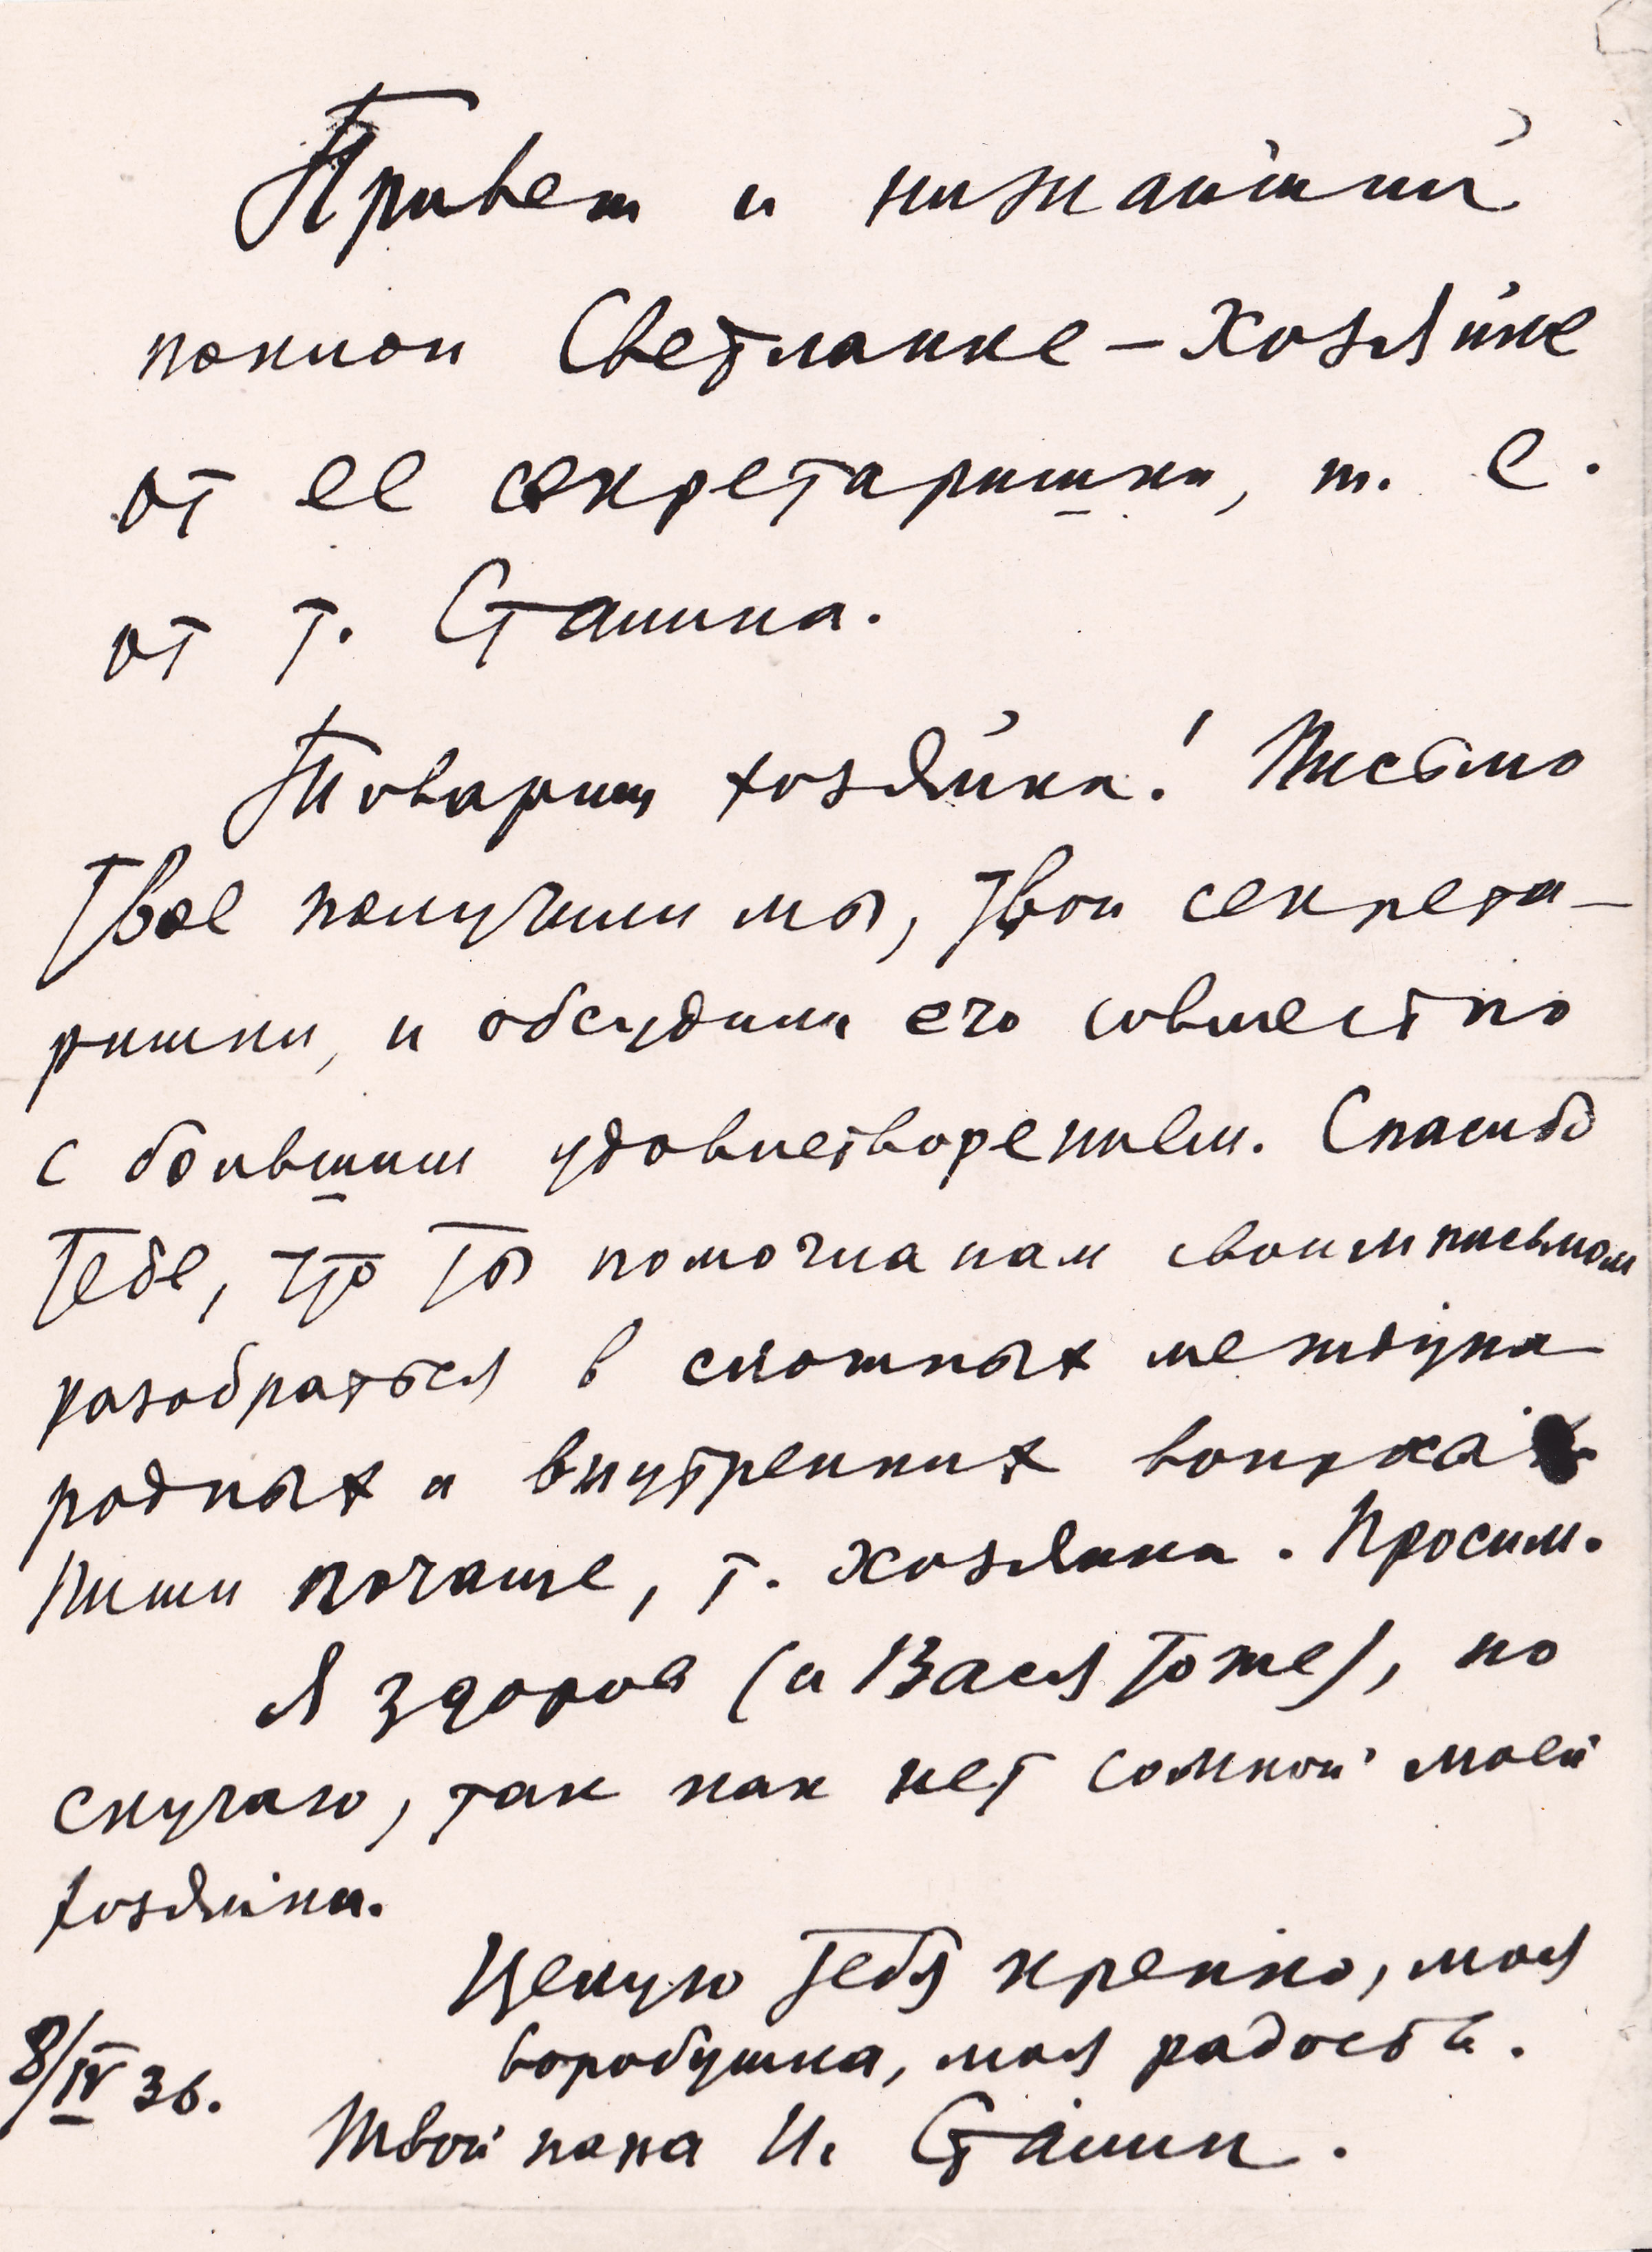 Привет и нижайший
поклон Светланке-Хозяйке
от ее секретаришки, т. е.
от т. Сталина.
Товарищ хозяйка! Письмо
твое получили мы, твои секрета-
ришки, и обсудили его совместно
с большим удовлетворением. Спасибо
тебе, что ты помогла нам своим письмом
разобраться в сложных междуна-
родных и внутренних вопросах.
Пиши почаще, т. хозяйка. Просим.
Я здоров (и Вася тоже), но
скучаю, так как нет со мной моей
хозяйки.
Целую тебя крепко, моя
воробушка, моя радость.
8/IV 36.
Твой папа И. Сталин.